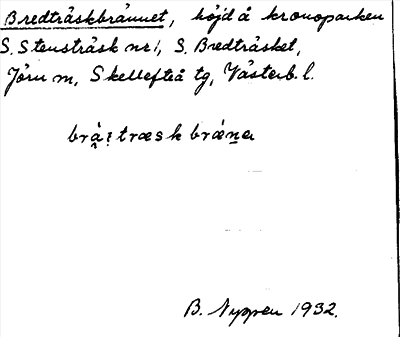 Bredträskbrännet, höjd å kronoparken
S. Stensträsk nr 1, S. Bredträsket,
Jörn m, Skellefteå tg, Västerb. l.
träsk
B. Nygren 1932.